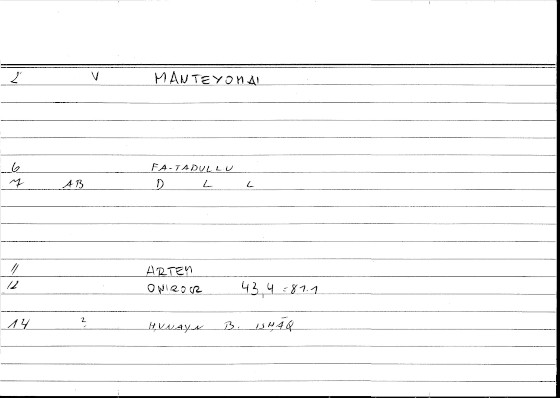 2 V MANTEYOMAI
6 FA-TADULLU
7 AB D L L
11 ARTEM
12 ONIROCR 43,4 = 87.1
14 ? HUNAYN B. ISHĀQ